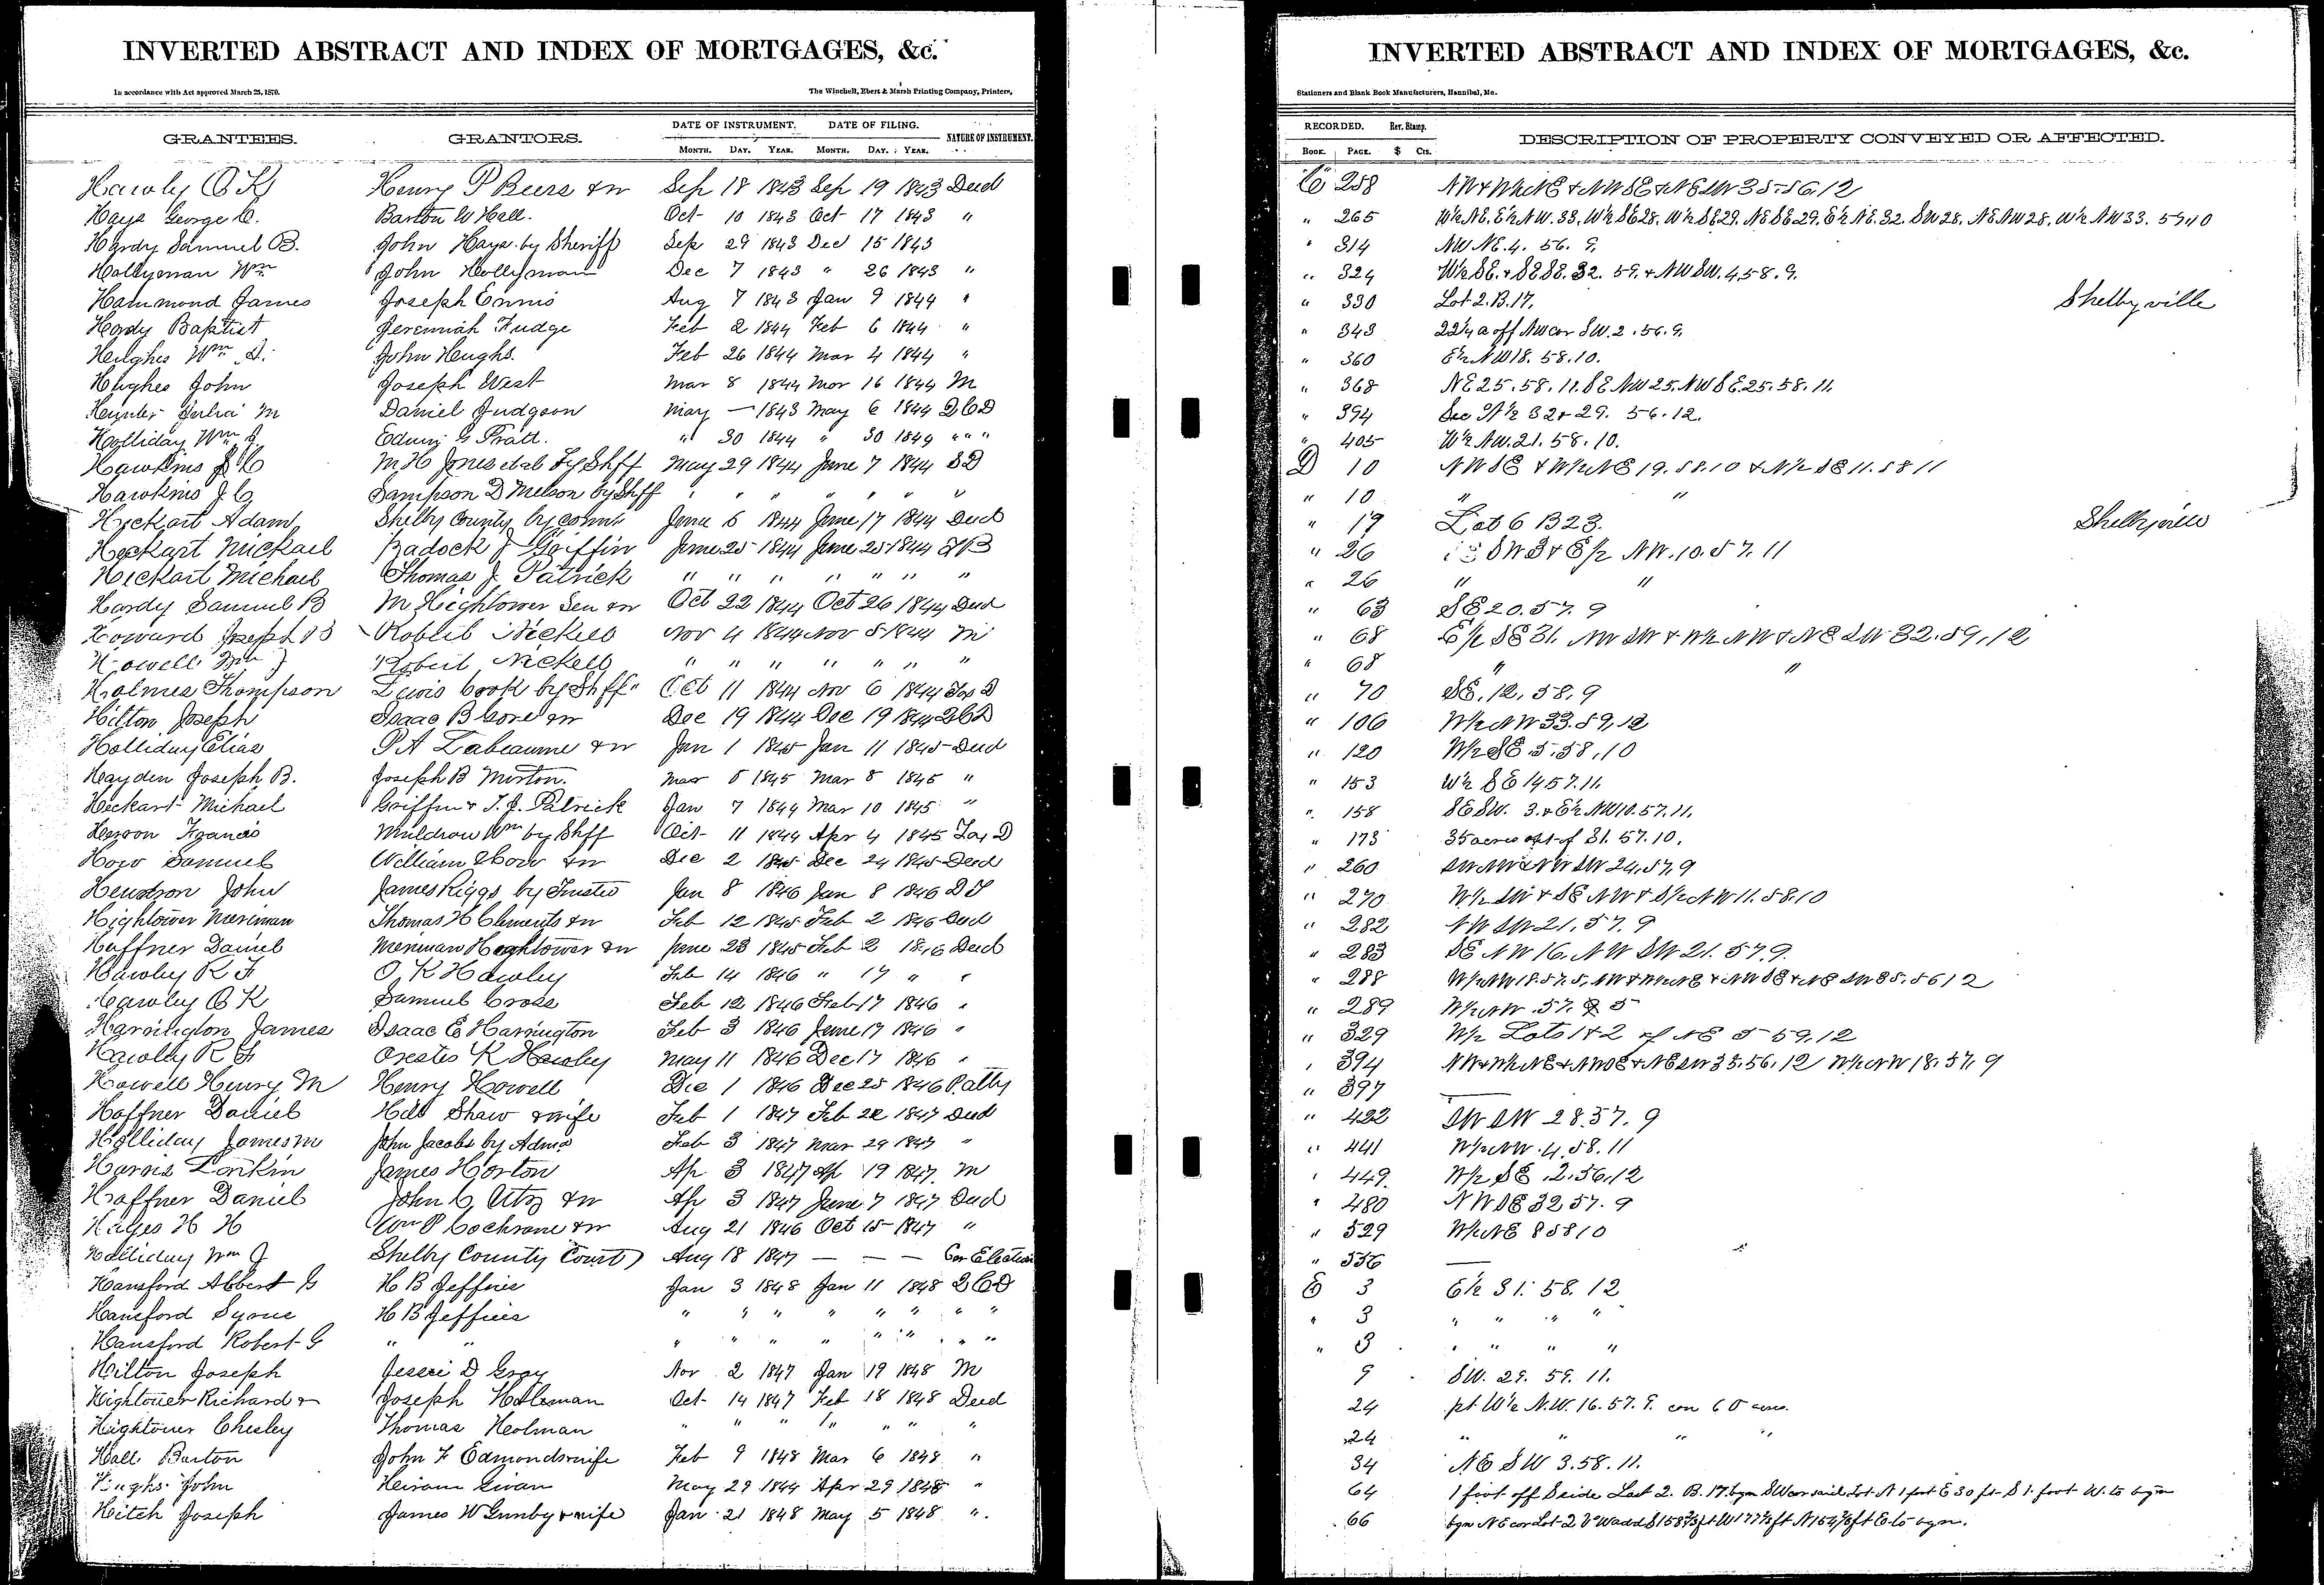 INVERTED ABSTRACT AND INDEX OF MORTGAGES, &c.
In accordance with Act approved March 25, 1870.
The Winchell, Ebert & Marsh Printing Company, Printers,
GRANTEES. GRANTORS. DATE OF INSTRUMENT. DATE OF FILING. NATURE OF INSTRUMENT.
MONTH. DAY. YEAR. MONTH. DAY. YEAR.
Hawley O K Henry P Beers & w Sep 18 1843 Sep 19 1843 Deed
Hays George C. Barton W Hall. Oct 10 1843 Oct 17 1843 "
Hardy Samuel B. John Hays by Sheriff Sep 29 1843 Dec 15 1843
Hollyman Wm John Hollyman Dec 7 1843 " 26 1843 "
Hammond James Joseph Ennis Aug 7 1843 Jan 9 1844 "
Hardy Baptist Jeremiah Fudge Feb 2 1844 Feb 6 1844 "
Heughs Wm John Heughs. Feb 26 1844 Mar 4 1844 "
Hughes John Joseph West Mar 8 1844 Mar 16 1844 M
Julia M Daniel Judgson May — 1843 May 6 1844 Q C D
Holliday Wm J. Edwin G Pratt. " 30 1844 " 30 1844 " " "
Hawkins J C M H Jones et al by Shff May 29 1844 June 7 1844 S D
Hawkins J C. Sampson D Melson by Shff " " " " " " "
Heckart Adam Shelby County by Comr June 6 1844 June 17 1844 Deed
Heckart Michael Zadock J Griffin June 25 1844 June 25 1844 T B
Heckart Michael Thomas J Patrick " " " " " " "
Hardy Samuel B M Hightower Sen & w Oct 22 1844 Oct 26 1844 Deed
Howard Joseph B Robert Nickell Nov 4 1844 Nov 5 1844 M
Howell Wm J Robert Nickell " " " " " " "
Holmes Thompson Lewis Cook by Shff Oct 11 1844 Nov 6 1844 Tax D
Hilton Joseph Isaac B Gore & w Dec 19 1844 Dec 19 1844 Q C D
Holliday Elias P A Labeaume & w Jan 1 1845 Jan 11 1845 Deed
Hayden Joseph B. Joseph B Morton. Mar 5 1845 Mar 8 1845 "
Heckart Michael Griffin & T. J. Patrick Jan 7 1844 Mar 10 1845 "
Francis Muldrow Wm by Shff Oct 11 1844 Apr 4 1845 Tax D
How Samuel William How & w Dec 2 1845 Dec 24 1845 Deed
John James Riggs by Trustee Jan 8 1846 Jan 8 1846 D T
Hightower Merriman Thomas H Clements & w Feb 12 1845 Feb 2 1846 Deed
Haffner Daniel Merriman Hightower & w June 23 1845 Feb 2 1846 Deed
Hawley R F O. K Hawley Feb 14 1846 " 17 " "
Hawley O K Samuel Cross Feb 12 1846 Feb 17 1846 "
Harrington James Isaac E Harrington Feb 3 1846 June 17 1846 "
Hawley R F Orestes K Hawley May 11 1846 Dec 17 1846 "
Howell Henry M Henry Howell Dec 1 1846 Dec 25 1846 P. atty
Haffner Daniel Hill Shaw & wife Feb 1 1847 Feb 22 1847 Deed
Holliday James M John Jacobs by Admr Feb 3 1847 Mar 29 1847 "
Harris Lankin James Horton Ap 3 1847 Ap 19 1847. M
Haffner Daniel John C Utz & w Ap 3 1847 June 7 1847 Deed
Hayes H H Wm P Cochrane & w Aug 21 1846 Oct 15 1847 "
Holliday Wm J Shelby County Court Aug 18 1847 — — — Cer Election
Hansford Albert G H B Jeffries Jan 3 1848 Jan 11 1848 Q C D
Hansford Syrus H B Jeffries " " " " " " " "
Hansford Robert G " " " " " " " " " "
Hilton Joseph Jesse D Gray Nov 2 1847 Jan 19 1848 M
Hightower Richard & Joseph Holeman Oct 14 1847 Feb 18 1848 Deed
Hightower Chesley Thomas Holman " " " " " " "
Hall Barton John F Edmonds wife Feb 9 1848 Mar 6 1848 "
Hughs John Hiram Givan May 29 1844 Apr 29 1848 "
Hitch Joseph James W Gunby & wife Jan 21 1848 May 5 1848 ".
INVERTED ABSTRACT AND INDEX OF MORTGAGES, &c.
Stationers and Blank Book Manufacturers, Hannibal, Mo.
RECORDED. Rev. Stamp. DESCRIPTION OF PROPERTY CONVEYED OR AFFECTED.
BOOK. PAGE. $ CTS.
C 258 NW & W½ NE & NW SE & NE SW 35-56.12
" 265 W½ NE. E½ NW. 33. W½ SE 28. W½ SE 29. NE SE 29. E½ NE. 32. SW 28. NE NW 28. W½ NW 33. 59.10
" 314 NW NE. 4. 56. 9.
" 324 W½ SE. & SE SE. 32. 59. & NW SW. 4.58.9.
" 330 Lot 2. B. 17. Shelbyville
" 343 22½ a off NW cor SW. 2. 56. 9.
" 360 E½ NW 18. 58. 10.
" 368 NE 25. 58. 11. SE NW 25. NW SE 25. 58. 11.
" 394 Sec N½ 32 & 29. 56. 12.
" 405 W½ NW. 21. 58. 10.
D 10 NW SE & W½ NE 19. 58.10 & N½ SE 11. 58 11
" 10 " "
" 19 Lot 6 B 23. Shelbyville
" 26 SE SW 3 & E½ NW. 10. 57. 11
" 26 " "
" 63 SE 20. 57. 9
" 68 E½ SE 31. NW SW & W½ NW & NE SW 32. 59. 12
" 68 " "
" 70 SE. 12. 58. 9
" 106 W½ NW 33. 59. 12
" 120 W½ SE. 5. 58. 10
" 153 W½ SE 14 57. 11.
" 158 SE SW. 3. & E½ NW 10. 57. 11.
" 173 35 acres of 31. 57. 10.
" 260 SW NW & NW SW 24. 57. 9
" 270 W½ SW & SE NW & S½ NW 11. 58 10
" 282 NW SW 21. 57. 9
" 283 SE NW 16. NW SW 21. 57 9.
" 288 W½ NW 18. 57. 5, NW & W½ NE & NW SE & NE SW 35. 56 12
" 289 W½ NW. 57. 5
" 329 W½ Lots 1 & 2 of NE 5 59. 12
" 394 NW & W½ NE & NW SE & NE SW 35. 56. 12 W½ NW 18. 57. 9
" 397 —
" 422 SW SW 28. 57. 9
" 441 W½ NW. 4. 58. 11
" 449 W½ SE. 2. 56. 12
" 480 NW SE 32 57. 9
" 529 W½ NE 8 58 10
" 536 —
E 3 E½ 31. 58. 12
" 3 " " " "
" 3 " " " "
9 SW. 29. 59. 11.
24 pt W½ N.W. 16. 57. 9. con 60 acres.
24 " " " "
34 NE SW 3. 58. 11.
64 1 foot off S side Lot 2. B. 17. bgn SW cor said Lot N 1 foot E 30 ft S 1. foot W. to bgn
66 bgn NE cor Lot 2 add S 158⅔ ft W 177½ ft N 154⅔ ft E to bgn.